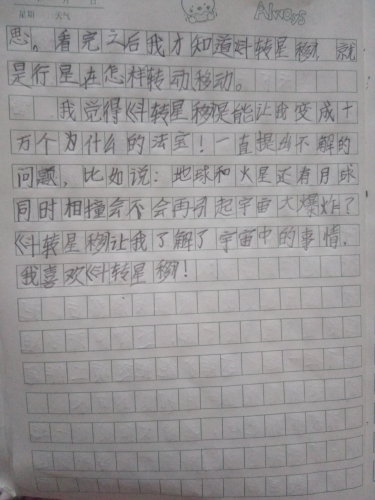 年 月 日
星期 天气
Always
思。看完之后我才知道《斗转星移》就
是行星在怎样转动移动。
我觉得《斗转星移》是能让我变成十
万个为什么的法宝!一直提出不解的
问题,比如说:地球和火星还有月球
同时相撞会不会再引起宇宙大爆炸?
《斗转星移》让我了解了宇宙中的事情,
我喜欢《斗转星移》!